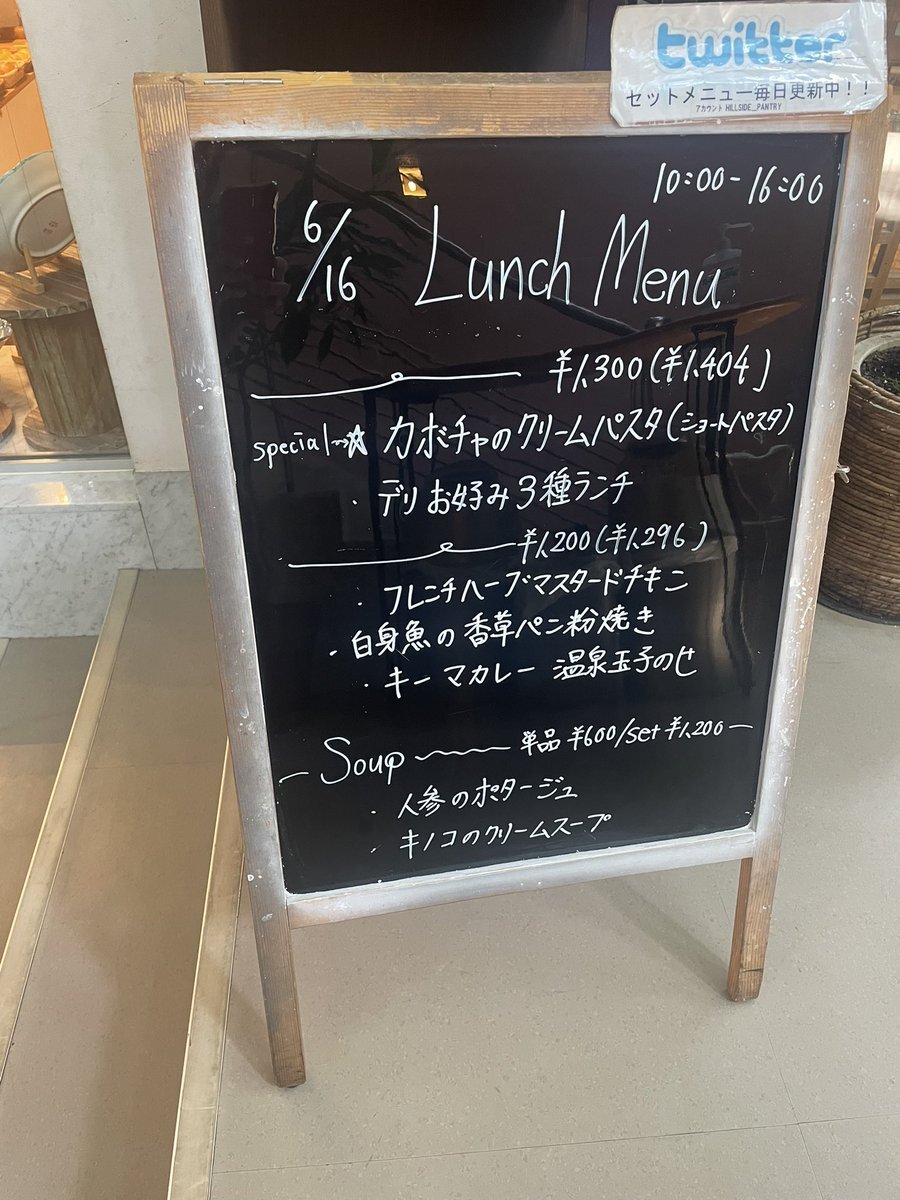 twitter
セットメニュー毎日更新中！！
アカウント HILLSIDE_PANTRY
10:00-16:00
6/16 Lunch Menu
¥1,300(¥1,404)
special→☆ カボチャのクリームパスタ(ショートパスタ)
・デリお好み3種ランチ
¥1,200(¥1,296)
・フレンチハーブマスタードチキン
・白身魚の香草パン粉焼き
・キーマカレー 温泉玉子のせ
Soup 単品 ¥600/set ¥1,200
・人参のポタージュ
・キノコのクリームスープ